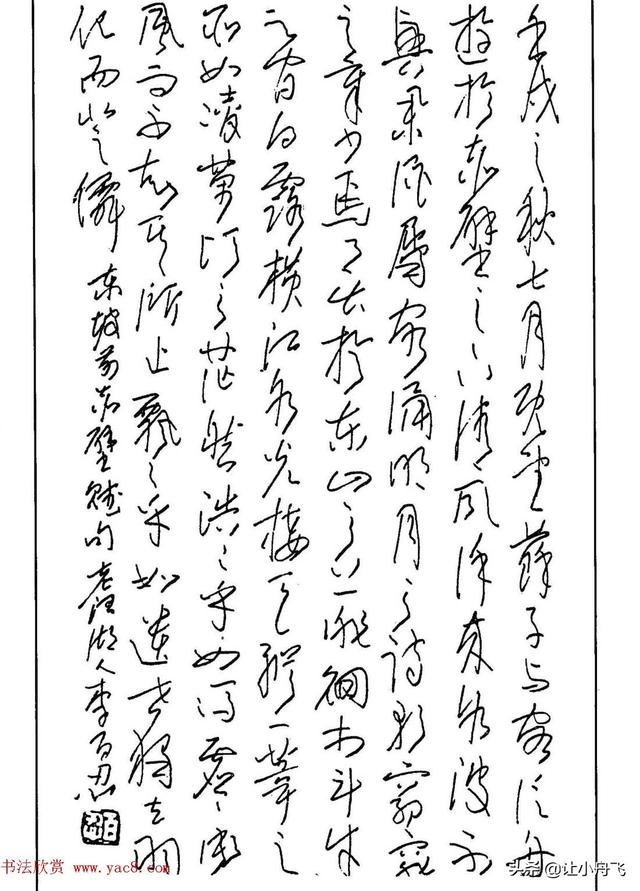 壬戌之秋七月既望蘇子与客泛舟
遊於赤壁之下清风徐来水波不
興举酒属客诵明月之诗歌窈窕
之章少焉月出於东山之上徘徊於斗牛
之间白露横江水光接天纵一苇之
所如凌萬顷之茫然浩〻乎如冯虚御
風而不知其所止飘〻乎如遗世独立羽
化而登僊 东坡前赤壁赋句 湖人李百忍
百忍
书法欣赏 www.yac8.com
头条 @让小舟飞